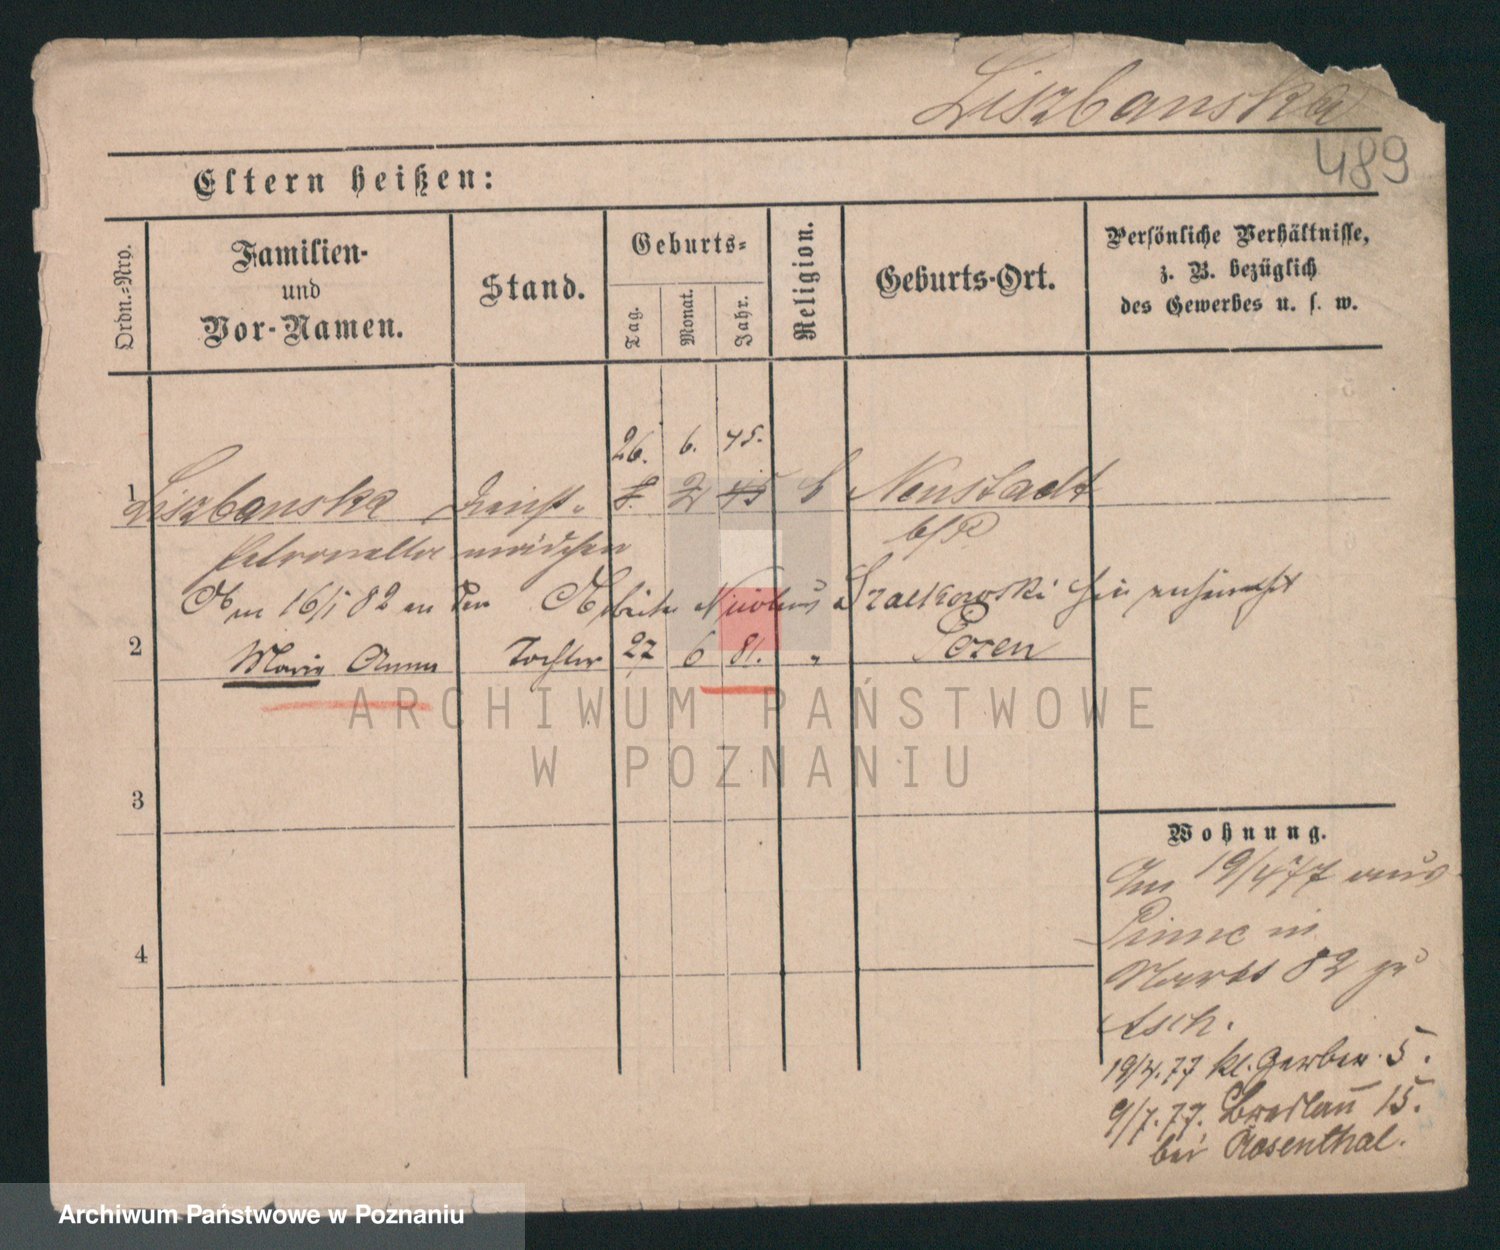 Liszbanska
489
Eltern heißen:
Ordn.-Nro.
Familien- und Vor-Namen.
Stand.
Geburts-
Tag.
Monat.
Jahr.
Religion.
Geburts-Ort.
Persönliche Verhältnisse,
z. B. bezüglich
des Gewerbes u. s. w.
26. 6. 45.
1 Liszbanska Dienst- 8. 2 45 k Neustadt
Petronella mädchen b/P
Am 16/1 82 an den Arbeiter Nicolaus Szalkowski hier verheirathet
2 Maria Anna Tochter 27 6 81. " Posen
3
4
Wohnung.
Am 19/4 77 aus
Pinne in
Markt 82 zu
Asch.
19/4.77 kl. Gerber. 5.
9/7.77. Breslau 15.
bei Rosenthal.
ARCHIWUM PAŃSTWOWE
W POZNANIU
Archiwum Państwowe w Poznaniu